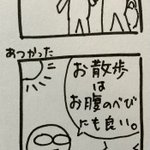 あつかった
お散歩
は
お腹のべび
にも良い。